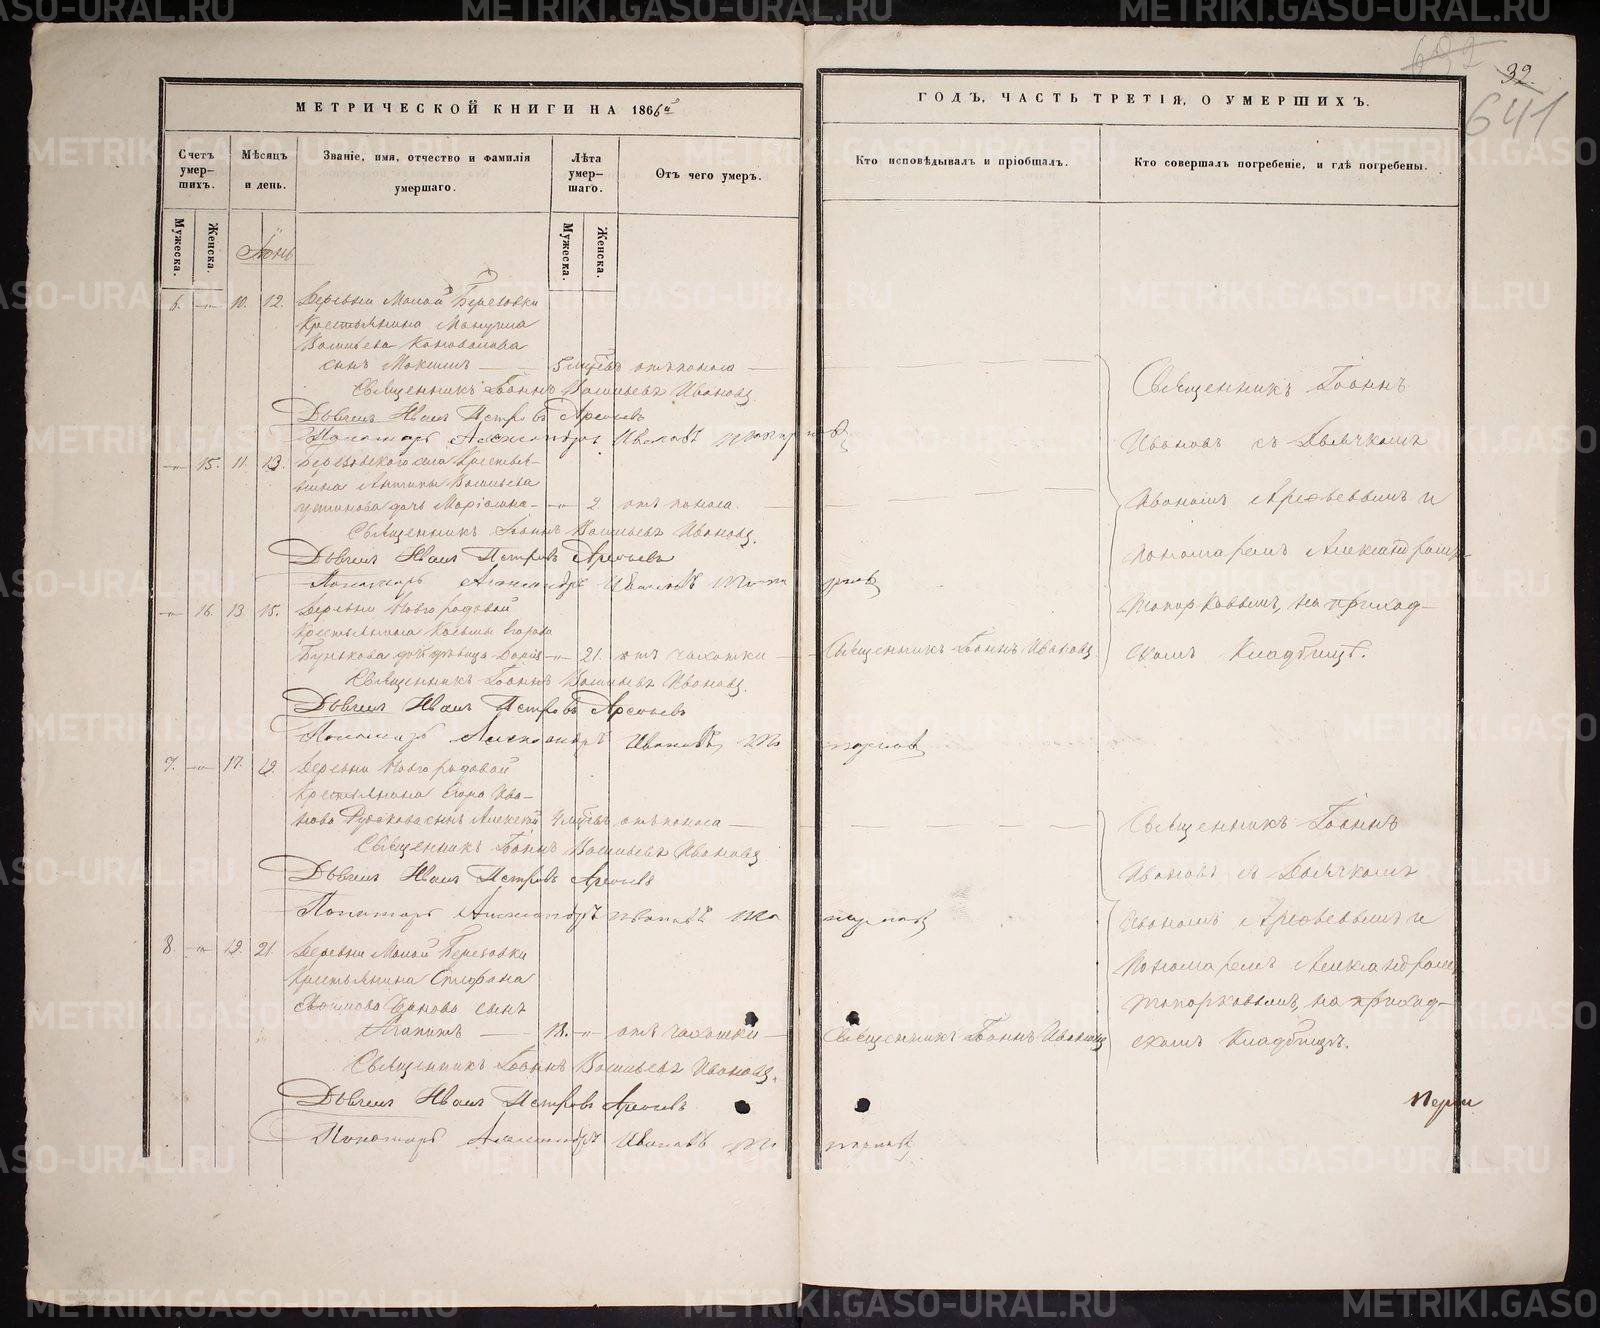 МЕТРИЧЕСКОЙ КНИГИ НА 1866й
ГОДЪ, ЧАСТЬ ТРЕТІЯ, О УМЕРШИХЪ.
32
641
Счетъ умер-шихъ.
Мѣсяцъ и день.
Званіе, имя, отчество и фамилія умершаго.
Лѣта умер-шаго.
Отъ чего умеръ.
Кто исповѣдывалъ и пріобщалъ.
Кто совершалъ погребеніе, и гдѣ погребены.
Мужеска.
Женска.
Мужеска.
Женска.
Іюнь
6. 10. 12. Деревни Малой Березовки
Крестьянина
Васильева Коновалова
сынъ Максимъ 5 отъ поноса
Священникъ Іоаннъ Васильевъ Ивановъ.
Дьячекъ Иванъ Петровъ Арефьевъ
Пономарь Александръ Ивановъ Топорковъ
15. 11. 13. Березовского села Крестья-
нина Антипы Васильева
Устинова дочь 2 отъ поноса.
Священникъ Іоаннъ Васильевъ Ивановъ.
Дьячекъ Иванъ Петровъ Арефьевъ
Пономарь Александръ Ивановъ Топорковъ
16. 13. 15. Деревни Новгородовой
Крестьянина Козьмы Егорова
Бунькова дочь дѣвица 21. отъ чахотки
Священникъ Іоаннъ Ивановъ
Священникъ Іоаннъ Васильевъ Ивановъ.
Дьячекъ Иванъ Петровъ Арефьевъ
Пономарь Александръ Ивановъ Топорковъ
Священникъ Іоаннъ
Ивановъ съ Дьячкомъ
Иваномъ Арефьевымъ и
Пономаремъ Александромъ
Топорковымъ, на приход-
скомъ Кладбищѣ.
7. 17. 19. Деревни Новгородовой
Крестьянина Егора Ива-
нова сынъ Алексѣй отъ поноса
Священникъ Іоаннъ Васильевъ Ивановъ
Дьячекъ Иванъ Петровъ Арефьевъ
Пономарь Александръ Ивановъ Топорковъ
8. 19. 21. Деревни Малой Березовки
Крестьянина Стефана
сынъ
Агапитъ 13. отъ чахотки
Священникъ Іоаннъ Ивановъ
Священникъ Іоаннъ Васильевъ Ивановъ.
Дьячекъ Иванъ Петровъ Арефьевъ
Пономарь Александръ Ивановъ Топорковъ
Священникъ Іоаннъ
Ивановъ съ Дьячкомъ
Иваномъ Арефьевымъ и
Пономаремъ Александромъ
Топорковымъ, на приход-
скомъ Кладбищѣ.
METRIKI.GASO-URAL.RU